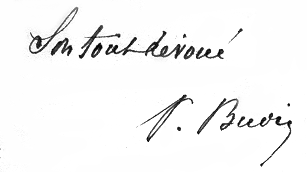 Son tout dévoué
P. Budin